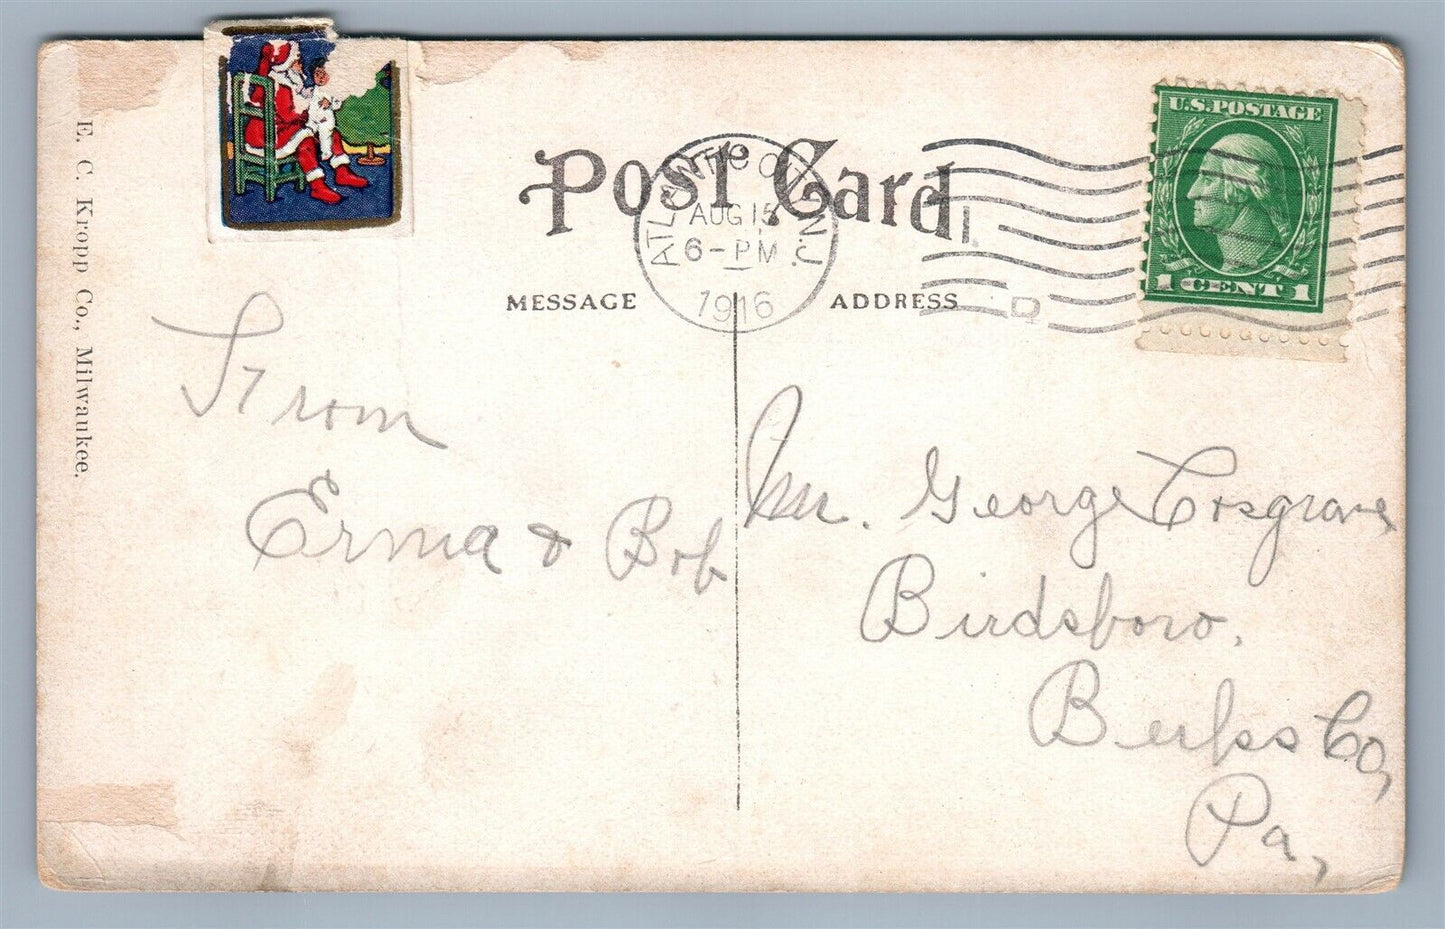 E. C. Kropp Co., Milwaukee.
Post Card
ATLANTIC CITY, N.J.
AUG 15
6-PM
1916
U.S. POSTAGE
1 CENT 1
MESSAGE
ADDRESS
From
Erma & Bob
Mr. George Cosgrove
Birdsboro,
Berks Co,
Pa,